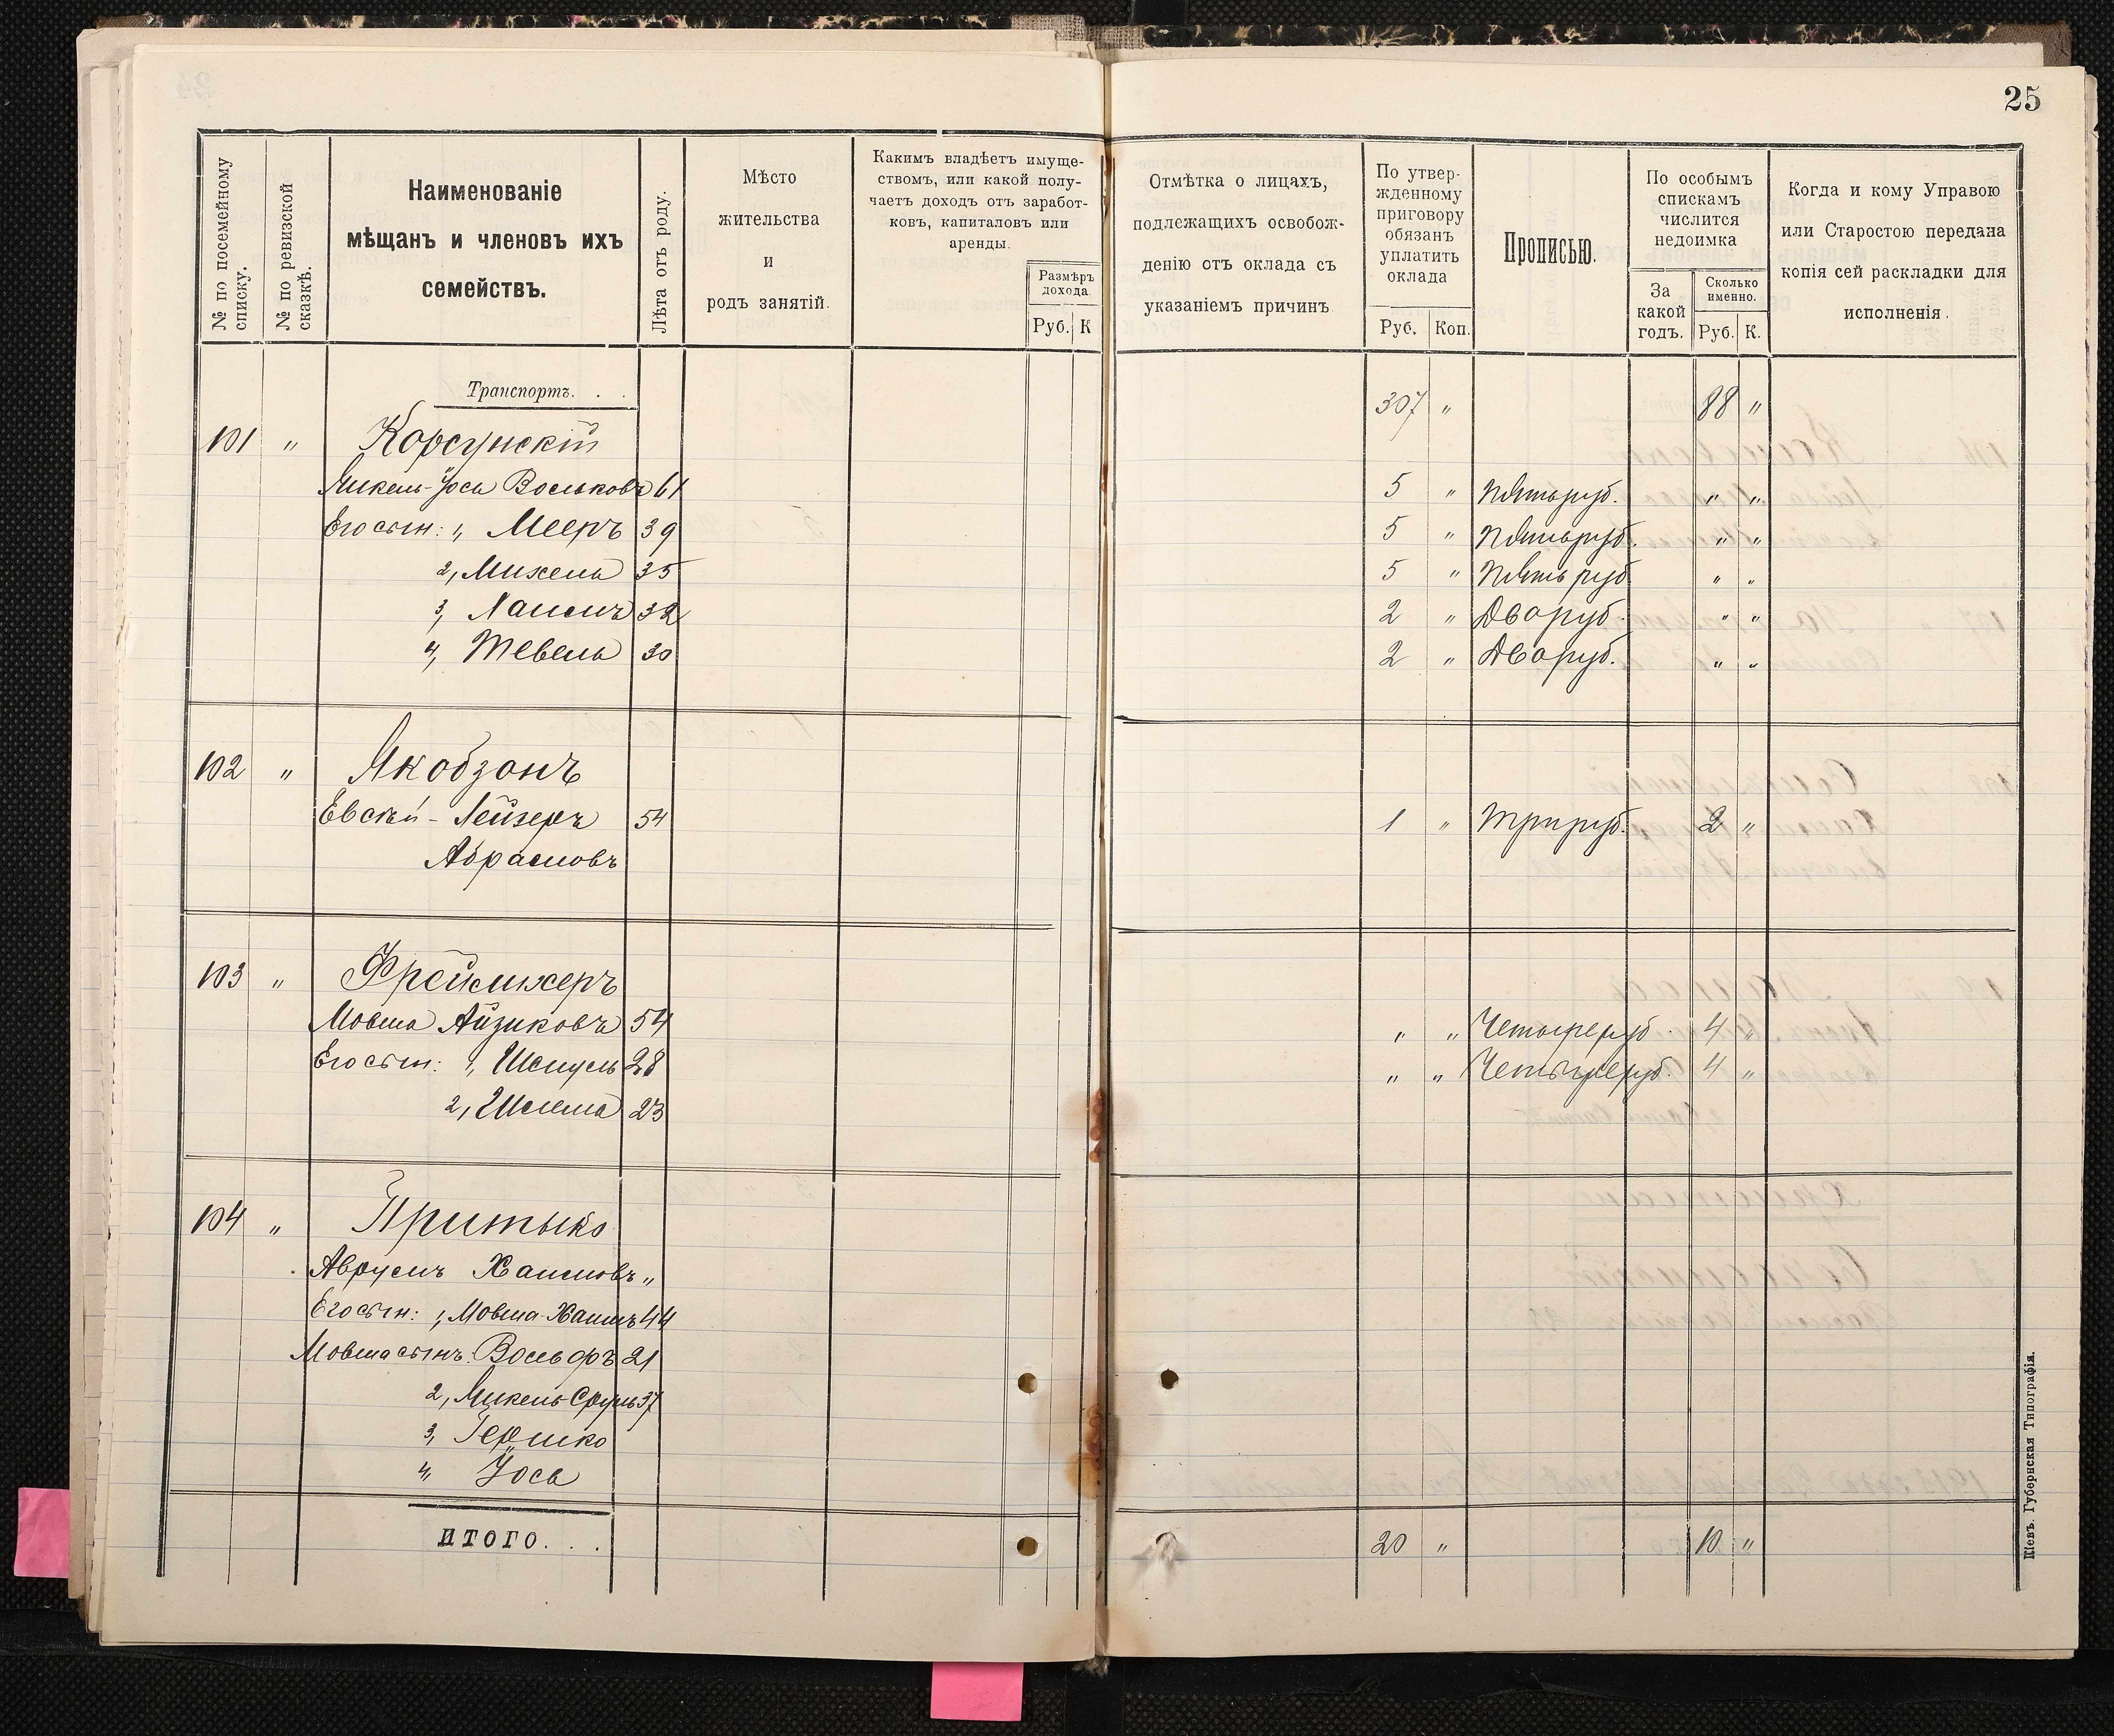 25
№ по посемейному списку.
№ по ревизской сказкѣ.
Наименованіе
мѣщанъ и членовъ ихъ
семействъ.
Лѣта отъ роду.
Мѣсто
жительства
и
родъ занятій.
Какимъ владѣетъ имуще-
ствомъ, или какой полу-
чаетъ доходъ отъ заработ-
ковъ, капиталовъ или
аренды.
Размѣръ
дохода.
Руб. К
Отмѣтка о лицахъ,
подлежащихъ освобож-
денію отъ оклада съ
указаніемъ причинъ
По утвер-
жденному
приговору
обязанъ
уплатить
оклада
Руб. Коп.
Прописью.
По особымъ
спискамъ
числится
недоимка
За
какой
годъ.
Сколько
именно.
Руб. К.
Когда и кому Управою
или Старостою передана
копія сей раскладки для
исполненія.
Транспортъ. . . 307 " 88 "
101 " Корсунскій
Микель-Іось Вольковъ 61 5 " Пять руб. " "
Его сын: 1, Мееръ 39 5 " Пять руб. " "
2, Михель 35 5 " Пять руб. " "
3, Хаимъ 32 2 " Два руб. " "
4, Тевель 30 2 " Два руб. " "
102 " Якобзонъ
Евсѣй - Лейзеръ 54 1 " Три руб. 2 "
Абрамовъ
103 " Фреймхеръ
Мовша Айзиковъ 54 " " Четыре руб. 4 "
Его сын: 1, Шмуль 28 " " Четыре руб. 4 "
2, Шлема 23
104 " Притыко
Аврумъ Хаимовъ "
Его сын: 1, Мовша-Хаимъ 44
Мовша сынъ: Вольфъ 21
2, Микель-Сруль 37
3, Гершко
4, Іось
ИТОГО. . . 20 " 10 "
Кіевъ. Губернская Типографія.